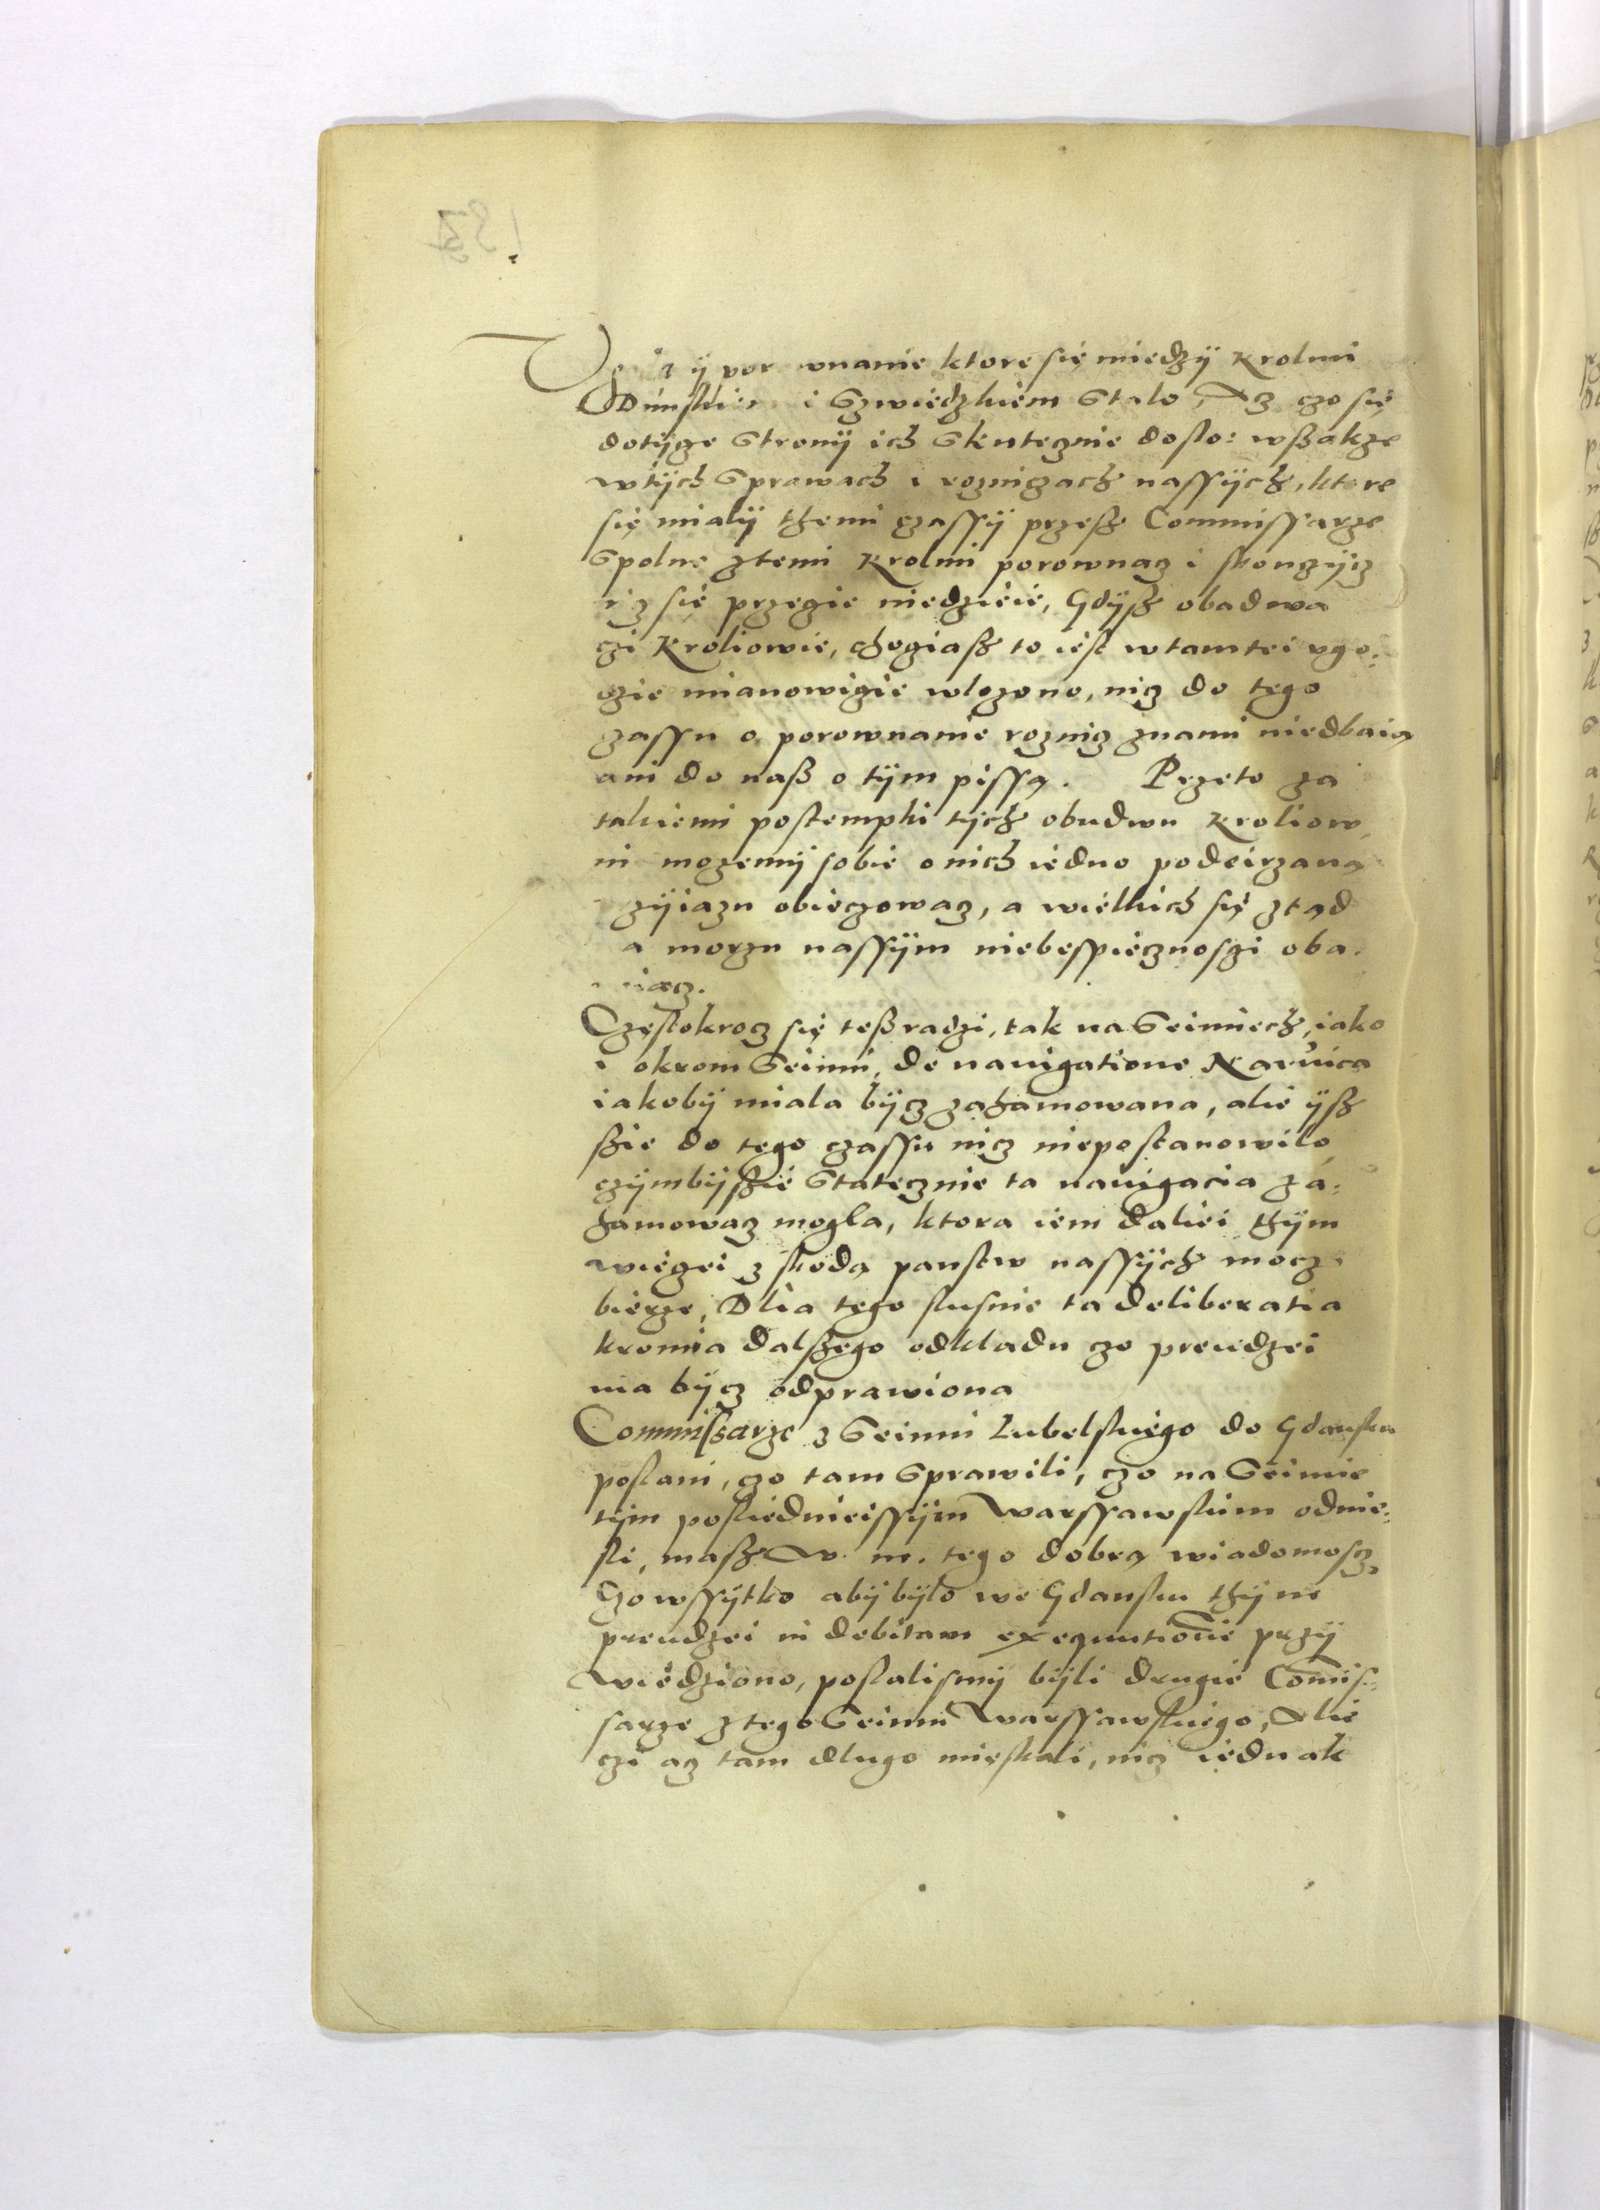 ÿ porownanie ktore się miedzÿ Krolmi
Dunskiem i Szwiedzkiem Stalo, Az czo się
dotÿcze Stronÿ ich Skutecznie doslo: wßakze
wtÿch Sprawach i rozniczach nassÿch, ktore
się mialÿ themi czassÿ przeß Commissarze
Spolne ztemi Krolmi porownacz i skonczÿcz
iz się przecie niedzieie, Gdÿß obadwa
czi Kroliowie, chocziaß to iest wtamtei vgo:
dzie mianowicie wlozono, nicz do tego
czassu o porownanie roznicz znami niedbaią
ani do naß o tÿm pissą. Przeto za
takiemi postempki tÿch obudwu Kroliow,
ni mozemÿ sobie o nich iedno podeirzaną
zÿiazn obieczowacz, a wielkich się ztąd
a morzu nassÿm niebespiecznosczi oba
wiacz.
Częstokrocz się teß radzi, tak na Seimiech, iako
i okrom Seimu, de nauigatione Naruica
iakobÿ miala bÿcz zahamowana, alie ÿß
ßie do tego czassu nicz niepostanowilo,
czÿmbÿßie Statecznie ta nauigacia za:
hamowacz mogla, ktora iem daliei thÿm
więcei z skodą panstw nassÿch mocz
bierze, Dlia tego slusnie ta deliberatia
kromia dalßego odkladu czo prędzei
ma bÿcz odprawiona
Commissarze z Seimu Lubelskiego do Gdanska
poslani, czo tam Sprawili, czo na Seimie
tÿm posliednieissÿm Warssawskim odnie:
sli, maß W. m. tego dobrą wiadomoscz,
Czo wssÿtko abÿ bÿlo we Gdansku thÿm
prendzei in debitam exequutionẽ przÿ
wiedziono, poslalismÿ bÿli drugie Com̃is:
sarze z tego Seimu Warssawskiego, Alie
czi acz tam dlugo mieskali, nicz iednak